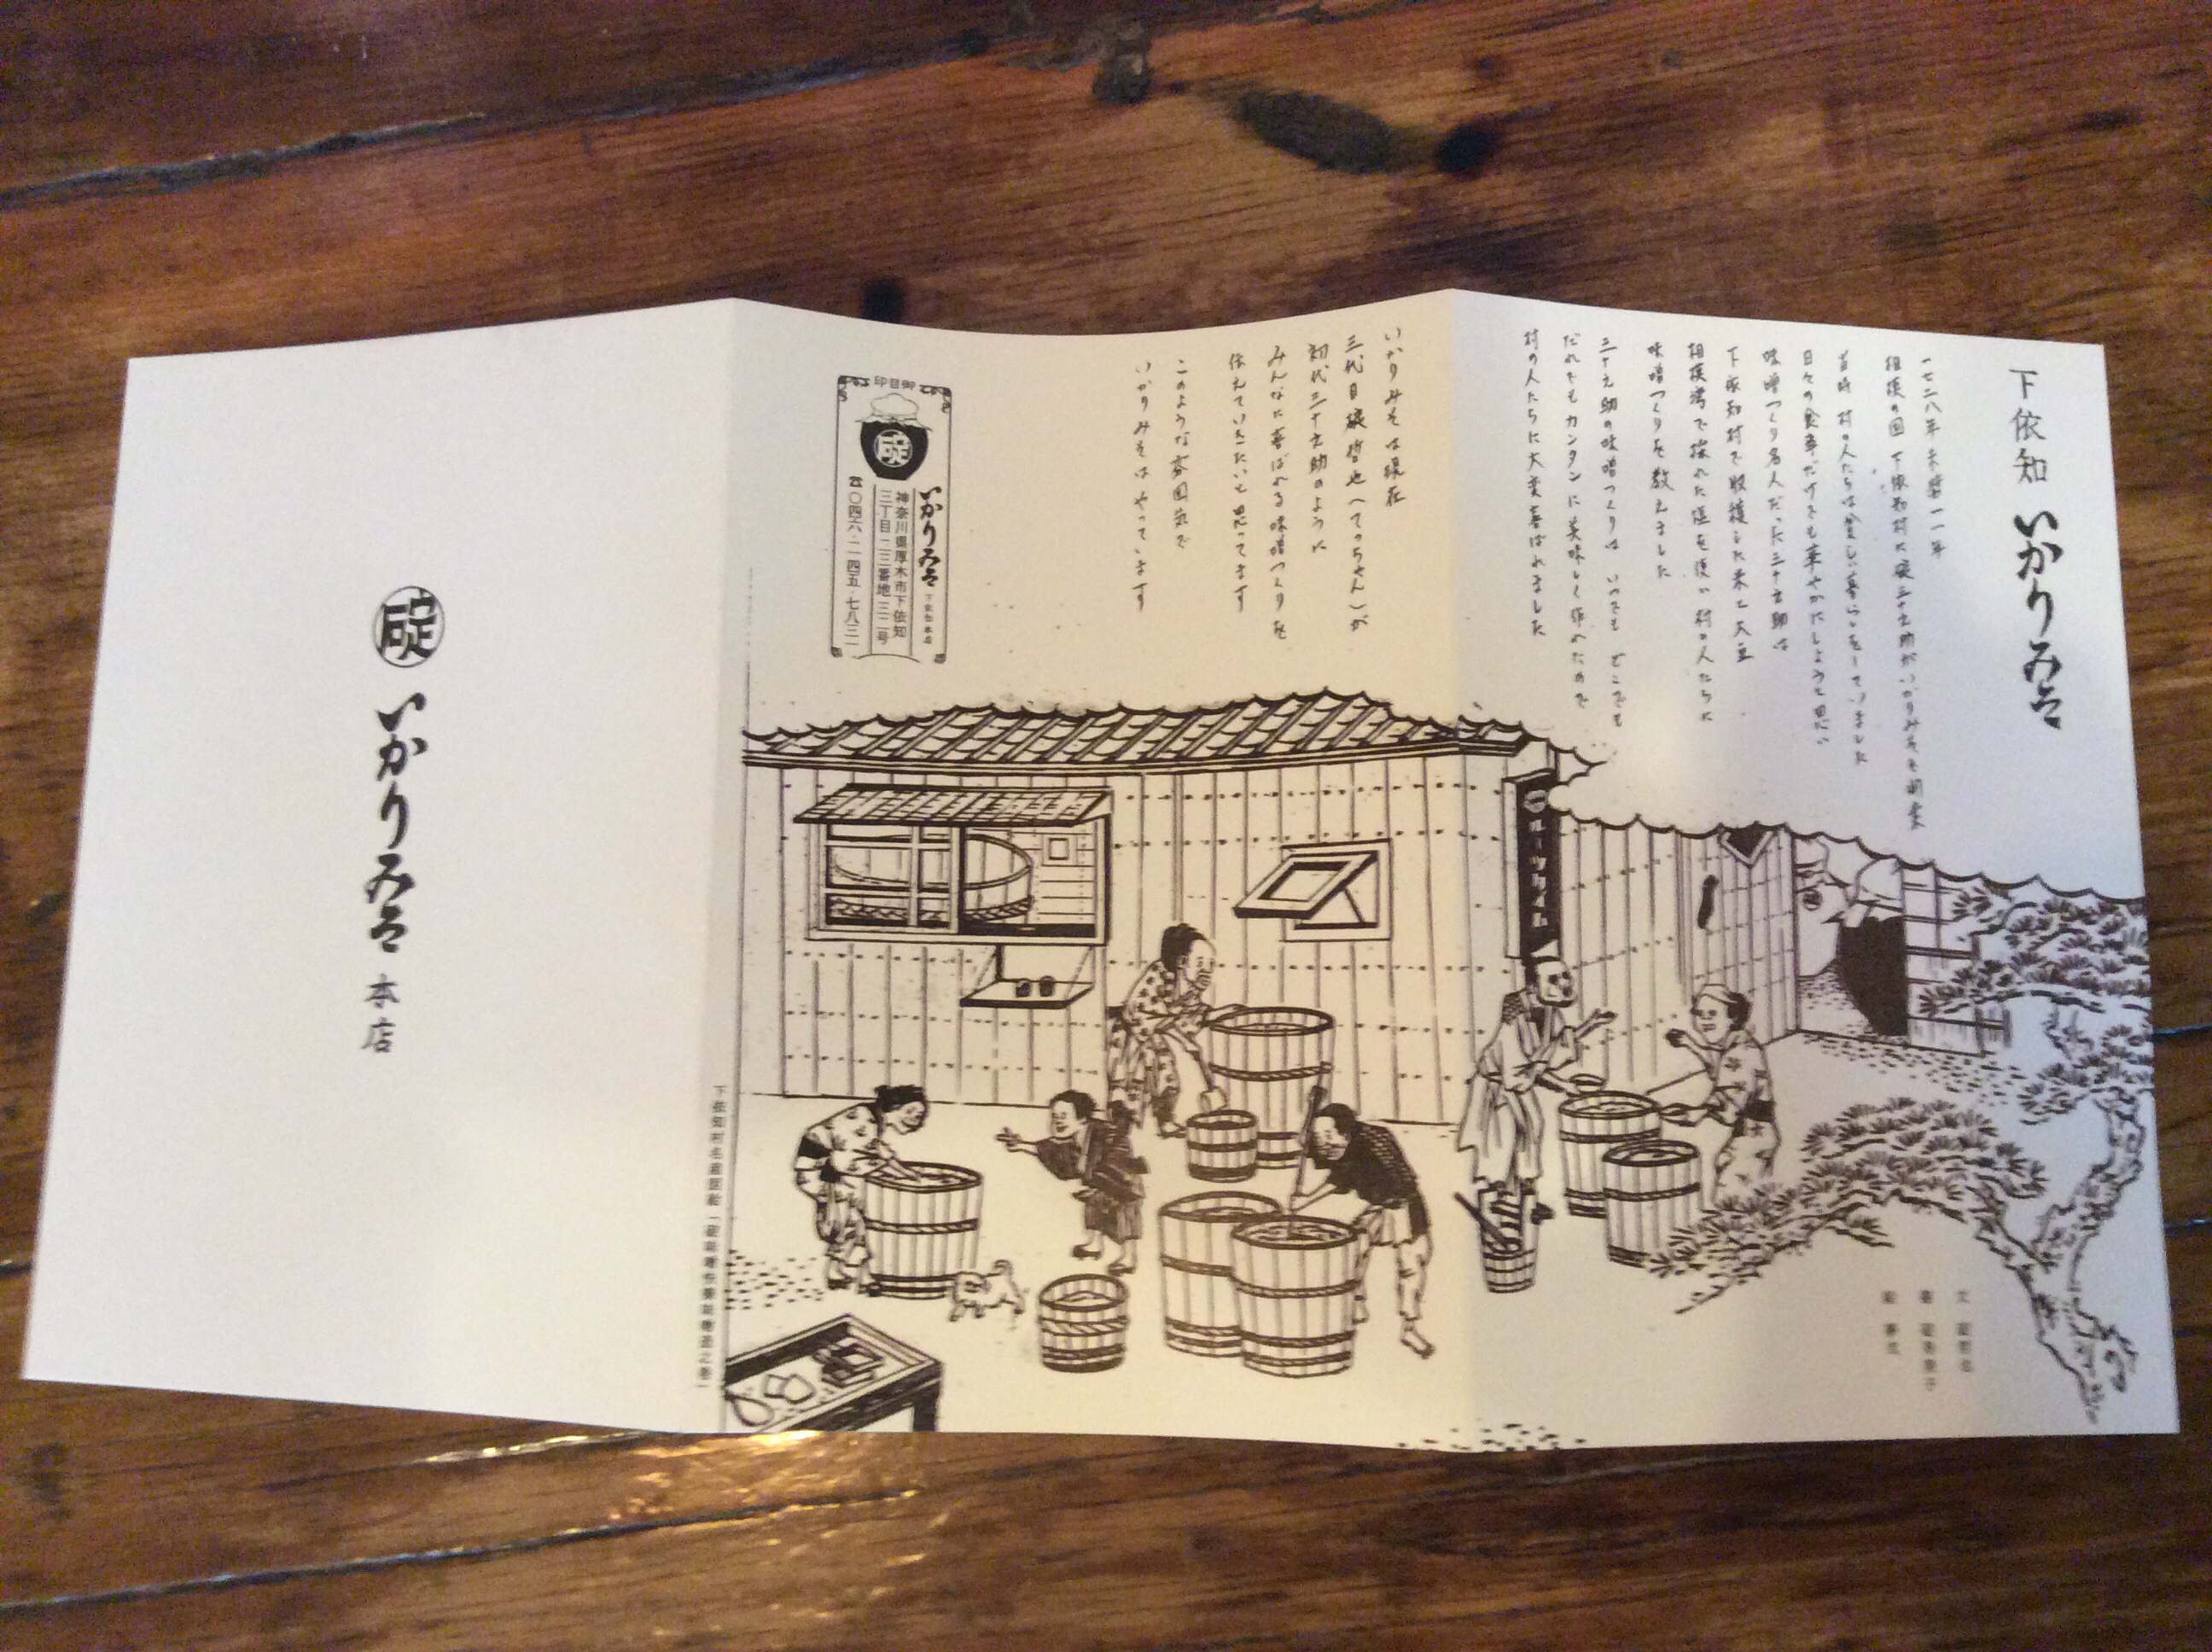 下依知 いかりみそ
一七二八年 享保
相模の国 下依知村に碇三十之助がいかりみそを開業
当時 村の人たちは貧しい暮らしをしていました
日々の食事だけでも華やかにしようと思い
味噌つくり名人だった三十之助は
下依知村で収穫した米と大豆
相模湾で採れた塩を使い 村の人たちに
味噌つくりを教えました
三十之助の味噌つくりは いつでも どこでも
だれでもカンタンに美味しく作れたので
村の人たちに大変喜ばれました
いかりみそは現在
三代目 碇 哲也(てっちゃん)が
初代三十之助のように
みんなに喜ばれる味噌つくりを
伝えていきたいと思ってます
このような雰囲気で
いかりみそはやっています
御目印
碇
いかりみそ 下依知本店
神奈川県厚木市下依知
三丁目二三番地三二号
☎〇四六・二四五・七八三一
下依知村名産図絵
碇
いかりみそ 本店